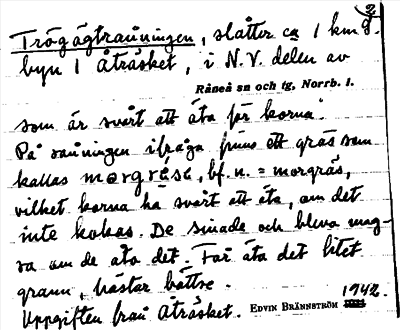 2
Trögägtrauningen, slåtter ca 1 km S.
byn 1 Åträsket, i N.V. delen av
Råneå sn och tg, Norrb. l.
som är svårt att äta för korna.
På rauningen ifråga finns ett gräs som
kallas morgrése, bf. n. = morgräs,
vilket korna ha svårt att äta, om det
inte kokas. De sinade och bleva mag-
ra om de åto det. Får äta det litet
grann, hästar bättre.
Uppgiften från Åträsket. EDVIN BRÄNNSTRÖM 1942.